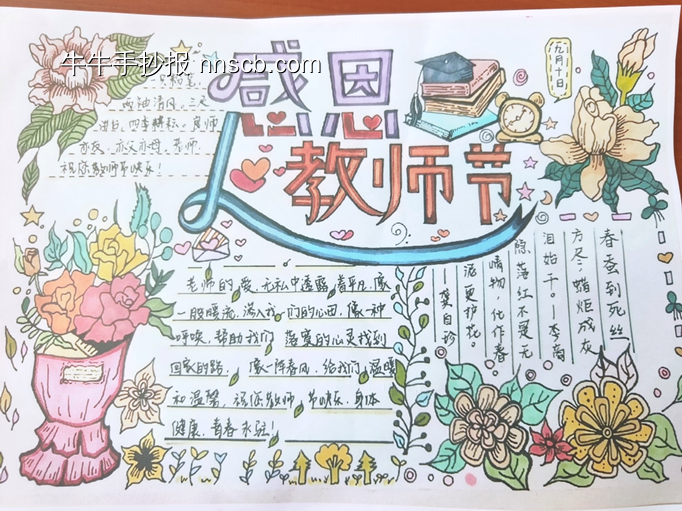 牛牛手抄报 nhscb.com
感恩
教师节
九月十日
两袖清风，三尺
讲台，四季耕耘，良师
益友，亦父亦母，老师，
祝您教师节快乐！
老师的爱，无私中透露着平凡，像
一股暖流，渗入我们的心田，像一种
呼唤，帮助我们落寞的心灵找到
回家的路，像一阵春风，给我们温暖
和温馨，祝您教师节快乐，身体
健康，青春永驻！
春蚕到死丝
方尽，蜡炬成灰
泪始干。—李商
隐 落红不是无
情物，化作春
泥更护花。
—龚自珍